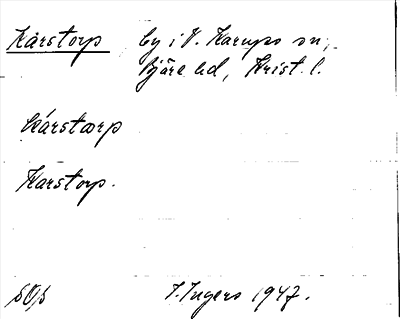 Karstorp by i V. Karups sn,
Bjäre hd, Krist. l.
Kárstorp
Karstorp.
SOS I. Ingers 1947.